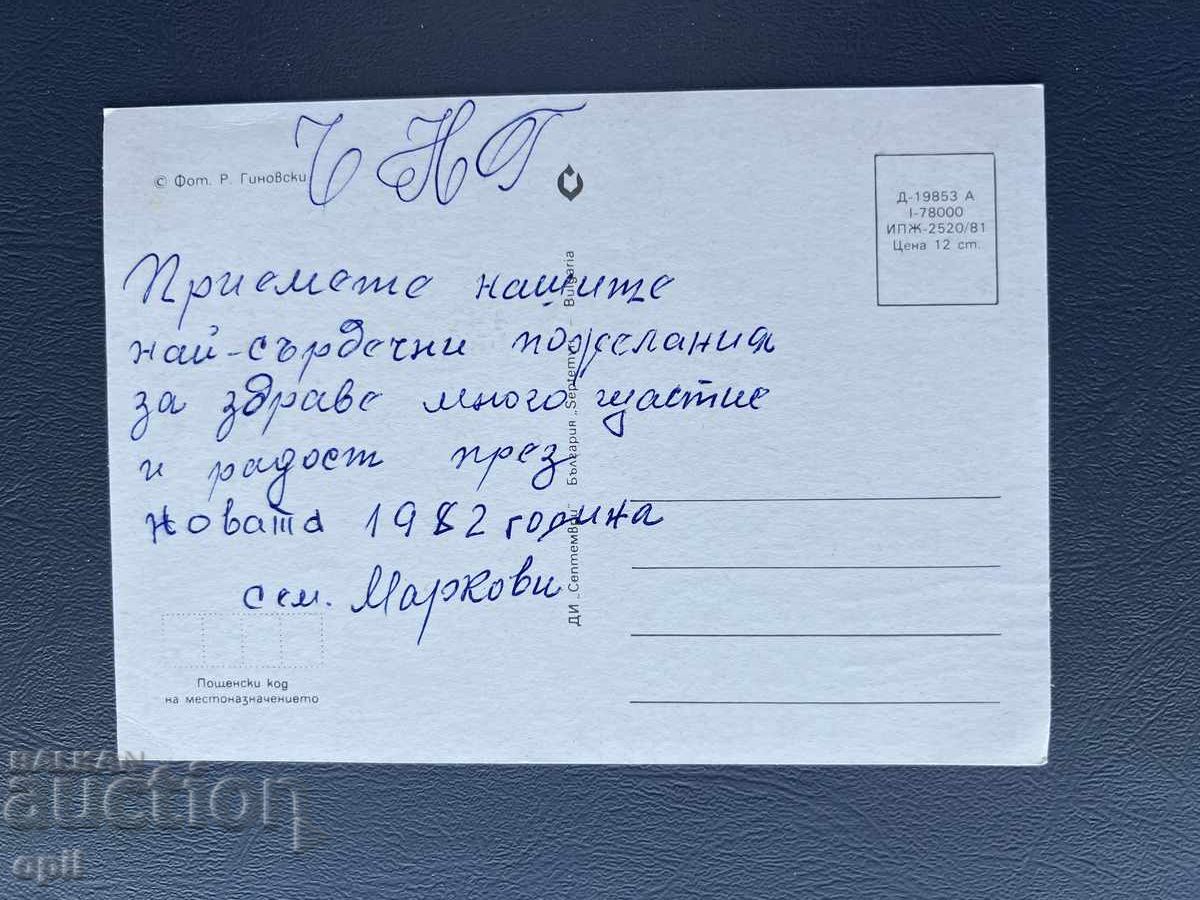 ЧНГ
© Фот. Р. Гиновски
Приемете нашите
най-сърдечни пожелания
за здраве много щастие
и радост през
новата 1982 година
сем. Маркови
Пощенски код
на местоназначението
ДИ „Септември“ България „Septemvri“ – Bulgaria
Д-19853 А
I-78000
ИПЖ-2520/81
Цена 12 ст.
BALKAN
auction
opil